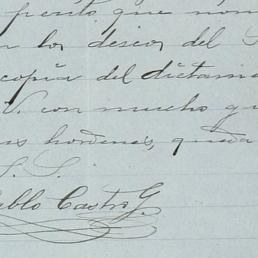 frento que nom
los deseos del S
copia del dictami
V. con mucho gu
us hordenes, queda
S. S.
ablo Castro G.